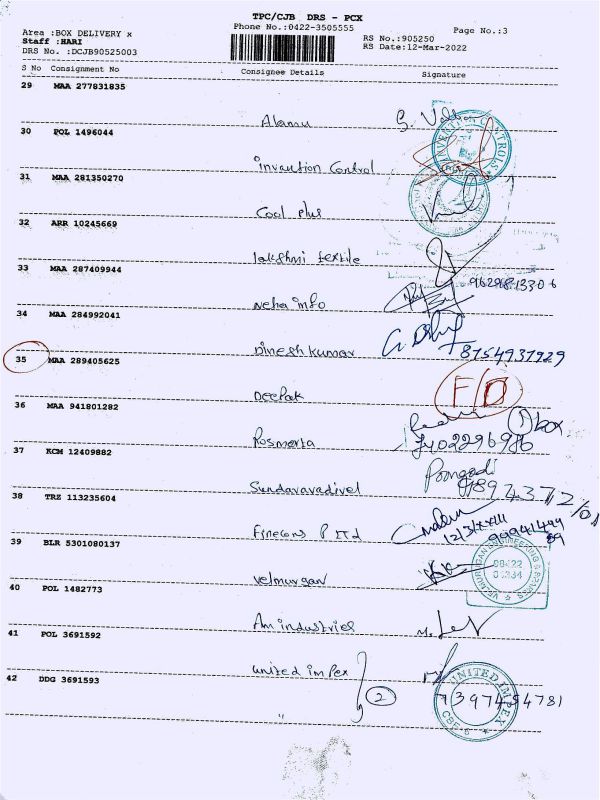 TPC/CJB DRS - PCX
Phone No.:0422-3505555
Page No.:3
Area :BOX DELIVERY x
Staff :HARI
DRS No. :DCJB90525003
RS No.:905250
RS Date:12-Mar-2022
S No Consignment No Consignee Details Signature
29 MAA 277831835
Alamu
30 POL 1496044
Invention Control
31 MAA 281350270
Cool plus
32 ARR 10245669
Lakshmi textile
33 MAA 287409944
Neha info
34 MAA 284992041
Dinesh kumar 8754931929
35 MAA 289405625
Deepak F/D
36 MAA 941801282
Rosmerta
37 KCM 12409882
Sundaravadivel
38 TRZ 113235604
Finecons P ltd
39 BLR 5301080137
Velmurgan
40 POL 1482773
Am industries
41 POL 3691592
united impex
42 DDG 3691593
" 2
UNITED IMPEX
CBE-6